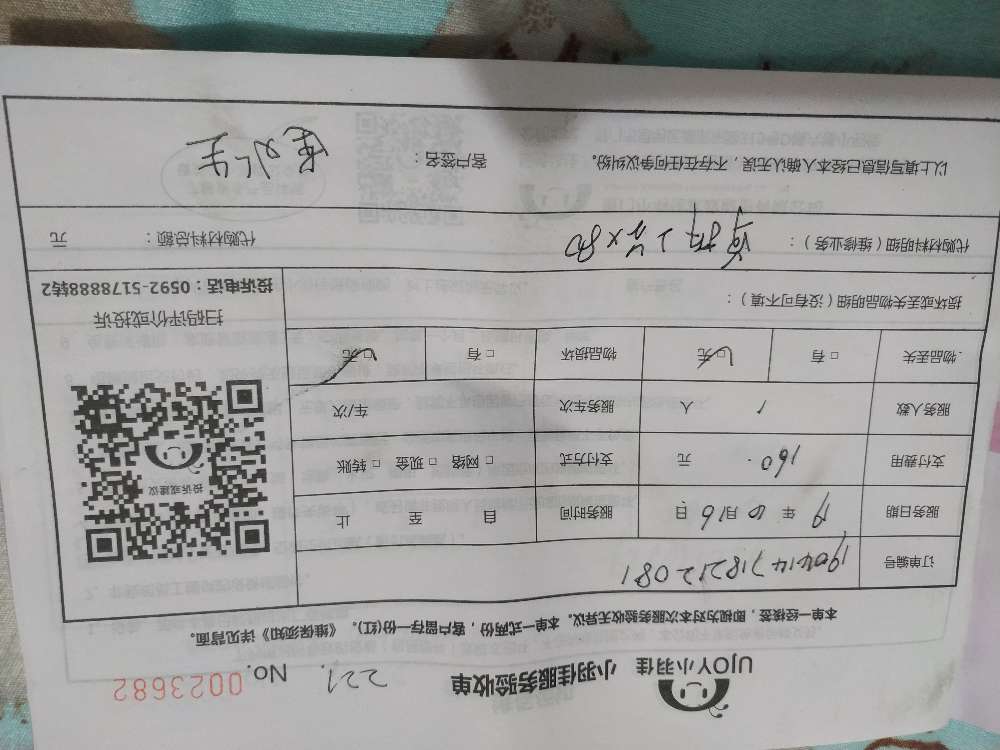 UJOY小羽佳 小羽佳服务验收单 No. 0023682
本单一经核签，即视为对本次服务验收无异议。本单一式两份，客户留存一份(红)。《维保须知》详见背面。
订单编号 190414718212081
服务日期 19 年 月16 日 服务时间 自 至 止
支付费用 160. 元 支付方式 □ 网络 □ 现金 □ 转账
服务人数 1 人 服务车次 车/次
物品丢失 □ 有 □ 无 物品损坏 □ 有 □ 无
投诉或建议
扫码评价或投诉
投诉电话：0592-5178888转2
损坏或丢失物品明细（没有可不填）：
代购材料明细（维修业务）： 代购材料总额： 元
以上填写信息已经本人确认无误，不存在任何争议纠纷。 客户签名：